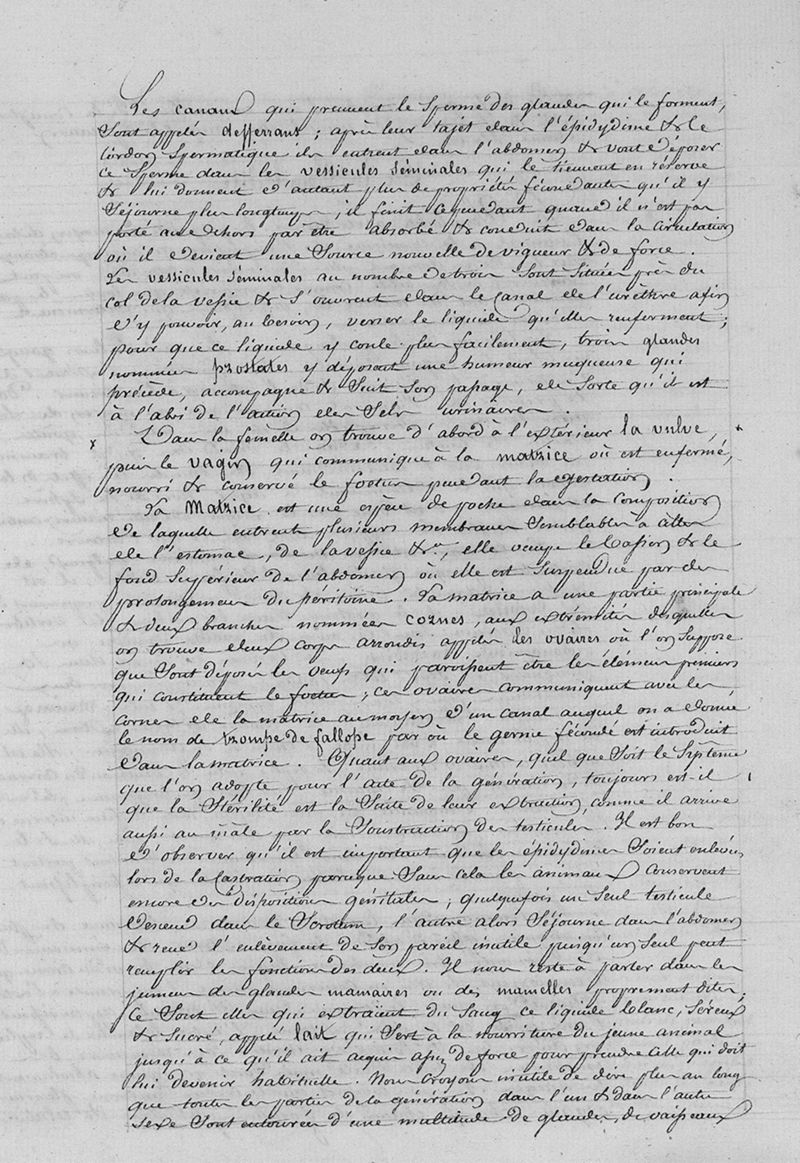 Les canaux qui prennent le sperme des glandes qui le forment,
sont appelés defferans ; après leur tajet dans l'épidydime & le
Cordon Spermatique ils entrent dans l'abdomen & vont déposer
ce Sperme dans les vessicules séminales qui le tiennent en réserve
& lui donnent d'autant plus de propriétés fécondantes qu'il y
Séjourne plus longtemps ; il finit cependant quand il n'est pas
porté au dehors par être absorbé & conduit dans la circulation
où il devient une source nouvelle de vigueur & de force.
Les vessicules séminales au nombre de trois sont situées près du
col de la vessie & s'ouvrent dans le canal de l'urèthre afin
d'y pouvoir, au besoin, verser le liquide qu'elles renferment ;
pour que ce liquide y coule plus facilement, trois glandes
nommées prostates y déposent une humeur muqueuse qui
précède, accompagne & suit son passage, de sorte qu'il est
à l'abri de l'action des sels urinaires.
Dans la femelle on trouve d'abord à l'extérieur la vulve,
puis le vagin qui communique à la matrice où est enfermé,
nourri & conservé le foetus pendant la gestation.
La Matrice est une espèce de poche dans la composition
de laquelle entrent plusieurs membranes semblables à celles
de l'estomac, de la vessie &a, elle occupe le bassin & le
fond supérieur de l'abdomen où elle est suspendue par des
prolongemens du péritoine. La matrice a une partie principale
& deux branches nommées cornes, aux extrémités desquelles
on trouve deux corps arrondis appelés les ovaires où l'on suppose
que sont déposés les oeufs qui paroissent être les élémens premiers
qui constituent le foetus ; ces ovaires communiquent avec les
cornes de la matrice au moyen d'un canal auquel on a donné
le nom de trompe de fallope par où le germe fécondé est introduit
dans la matrice. Quant aux ovaires, quel que soit le systême
que l'on adopte pour l'acte de la génération, toujours est-il
que la stérilité est la suite de leur extraction, comme il arrive
aussi au mâle par la soustraction des testicules. Il est bon
d'observer qu'il est important que les épidydimes soient enlevés
lors de la castration parceque sans cela les animaux conservent
encore des dispositions génitales ; quelquefois un seul testicule
descend dans le Scrotum, l'autre alors séjourne dans l'abdomen
& rend l'enlèvement de son pareil inutile puisqu'un seul peut
remplir les fonctions des deux. Il nous reste à parler dans les
jumens des glandes mamaires ou des mamelles proprement dites.
Ce sont elles qui extraient du sang ce liquide blanc, séreux
& sucré, appelé lait qui sert à la nourriture du jeune animal
jusqu'à ce qu'il ait acquis assez de force pour prendre celle qui doit
lui devenir habituelle. Nous croyons inutile de dire plus au long
que toutes les parties de la génération dans l'un & dans l'autre
sexe sont entourées d'une multitude de glandes, de vaisseaux